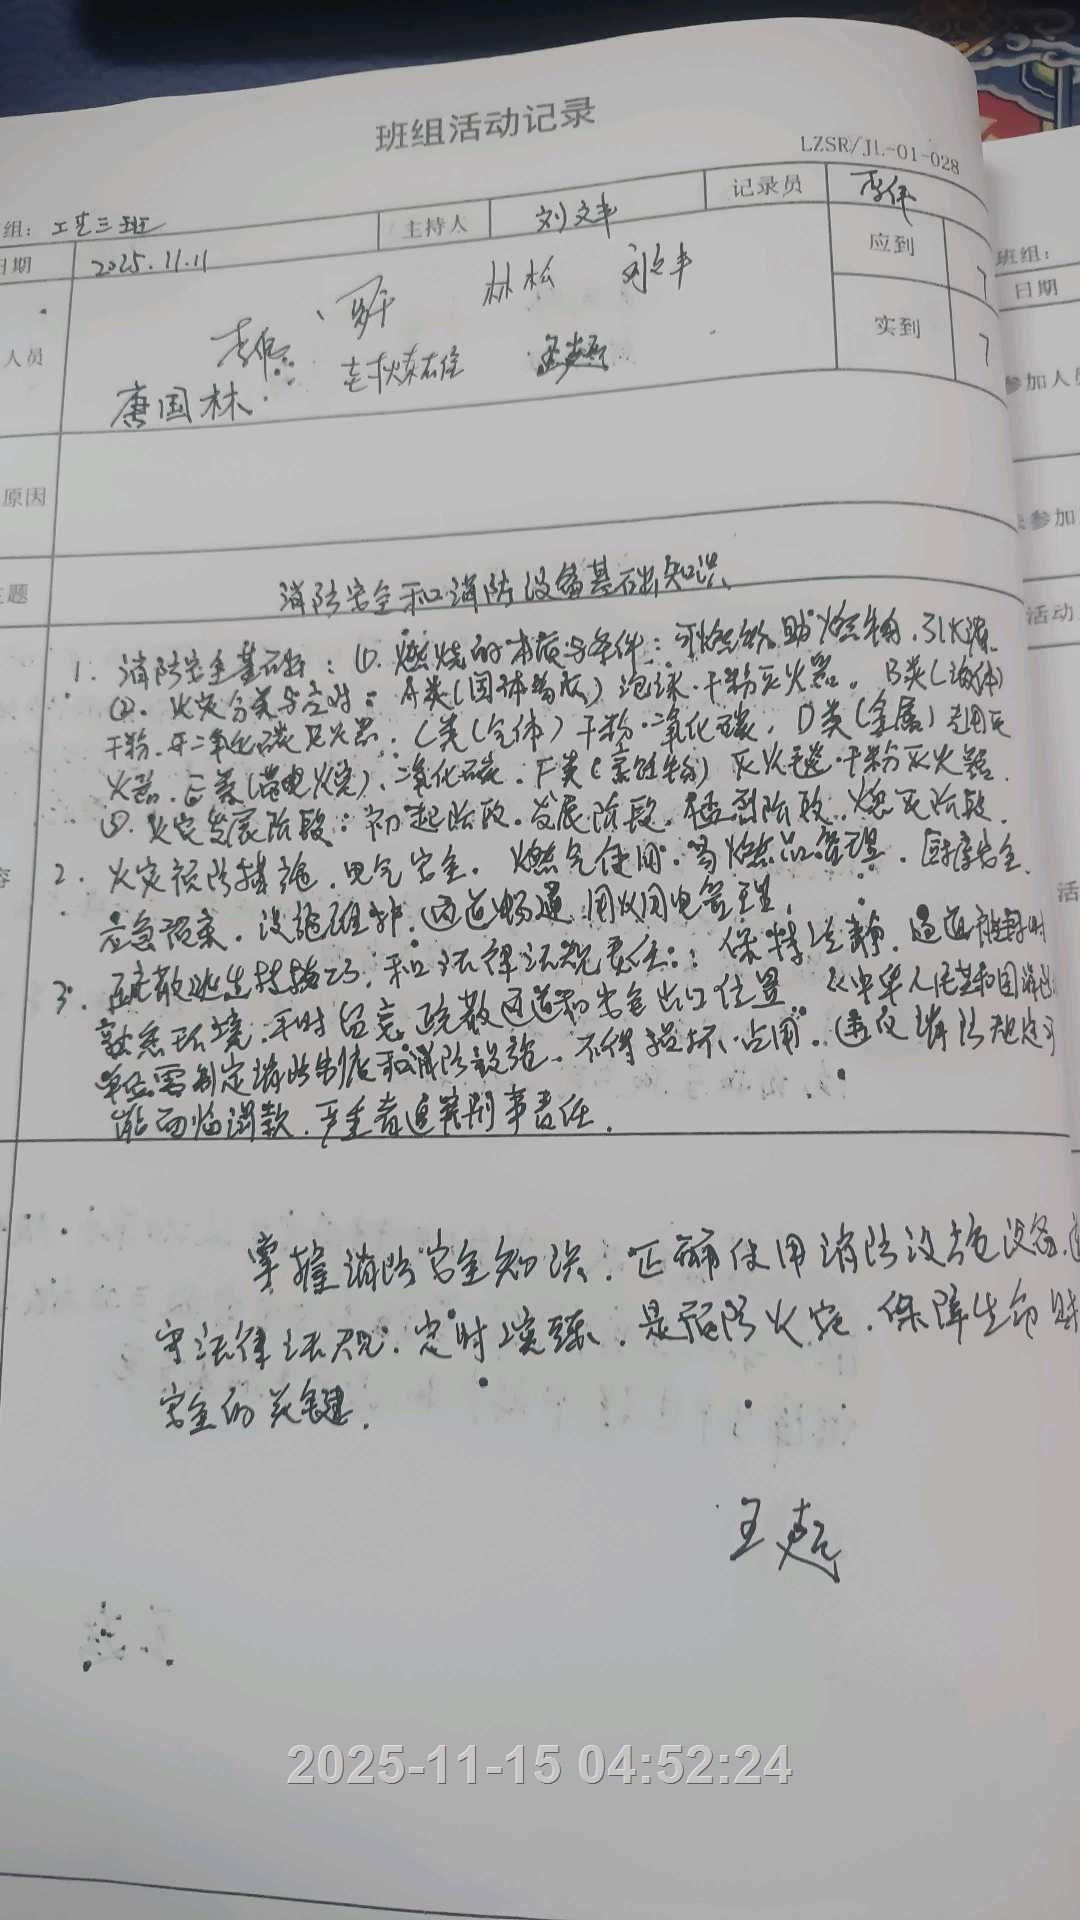 班组活动记录
LZSR/JL-01-028
组: 工艺三班 主持人 刘文丰 记录员 李伟
日期 2025.11.11 应到 7
人员 林松 刘文丰 实到 7
唐国林
原因
主题 消防安全和消防设备基础知识
1. 消防安全基础: ①. 燃烧的本质与条件: 可燃物、助燃物、引火源
②. 火灾分类与应对: A类(固体物质) 泡沫、干粉灭火器。B类(液体)
干粉、二氧化碳灭火器. C类(气体) 干粉、二氧化碳, D类(金属) 专用灭
火器. E类(带电火烧), 二氧化碳. F类(烹饪物) 灭火毯、干粉灭火器.
火灾发展阶段: 初起阶段. 发展阶段. 猛烈阶段. 熄灭阶段.
2. 火灾预防措施. 电气安全. 燃气使用. 易燃品管理. 厨房安全.
应急预案. 设施维护. 通道畅通. 用火用电管理.
3. 疏散逃生技巧, 和法律法规责任: 保持冷静. 通道
熟悉环境. 平时留意疏散通道和安全出口位置 《中华人民共和国消
单位需制定消防制度和消防设施. 不得损坏、占用. (违反消防规定可
能面临罚款. 严重者追究刑事责任.
掌握消防安全知识. 正确使用消防设施设备.
守法律法规. 定时演练. 是预防火灾. 保障生命财
安全的关键.
班组:
日期
参加人员
参加
活动
活
2025-11-15 04:52:24